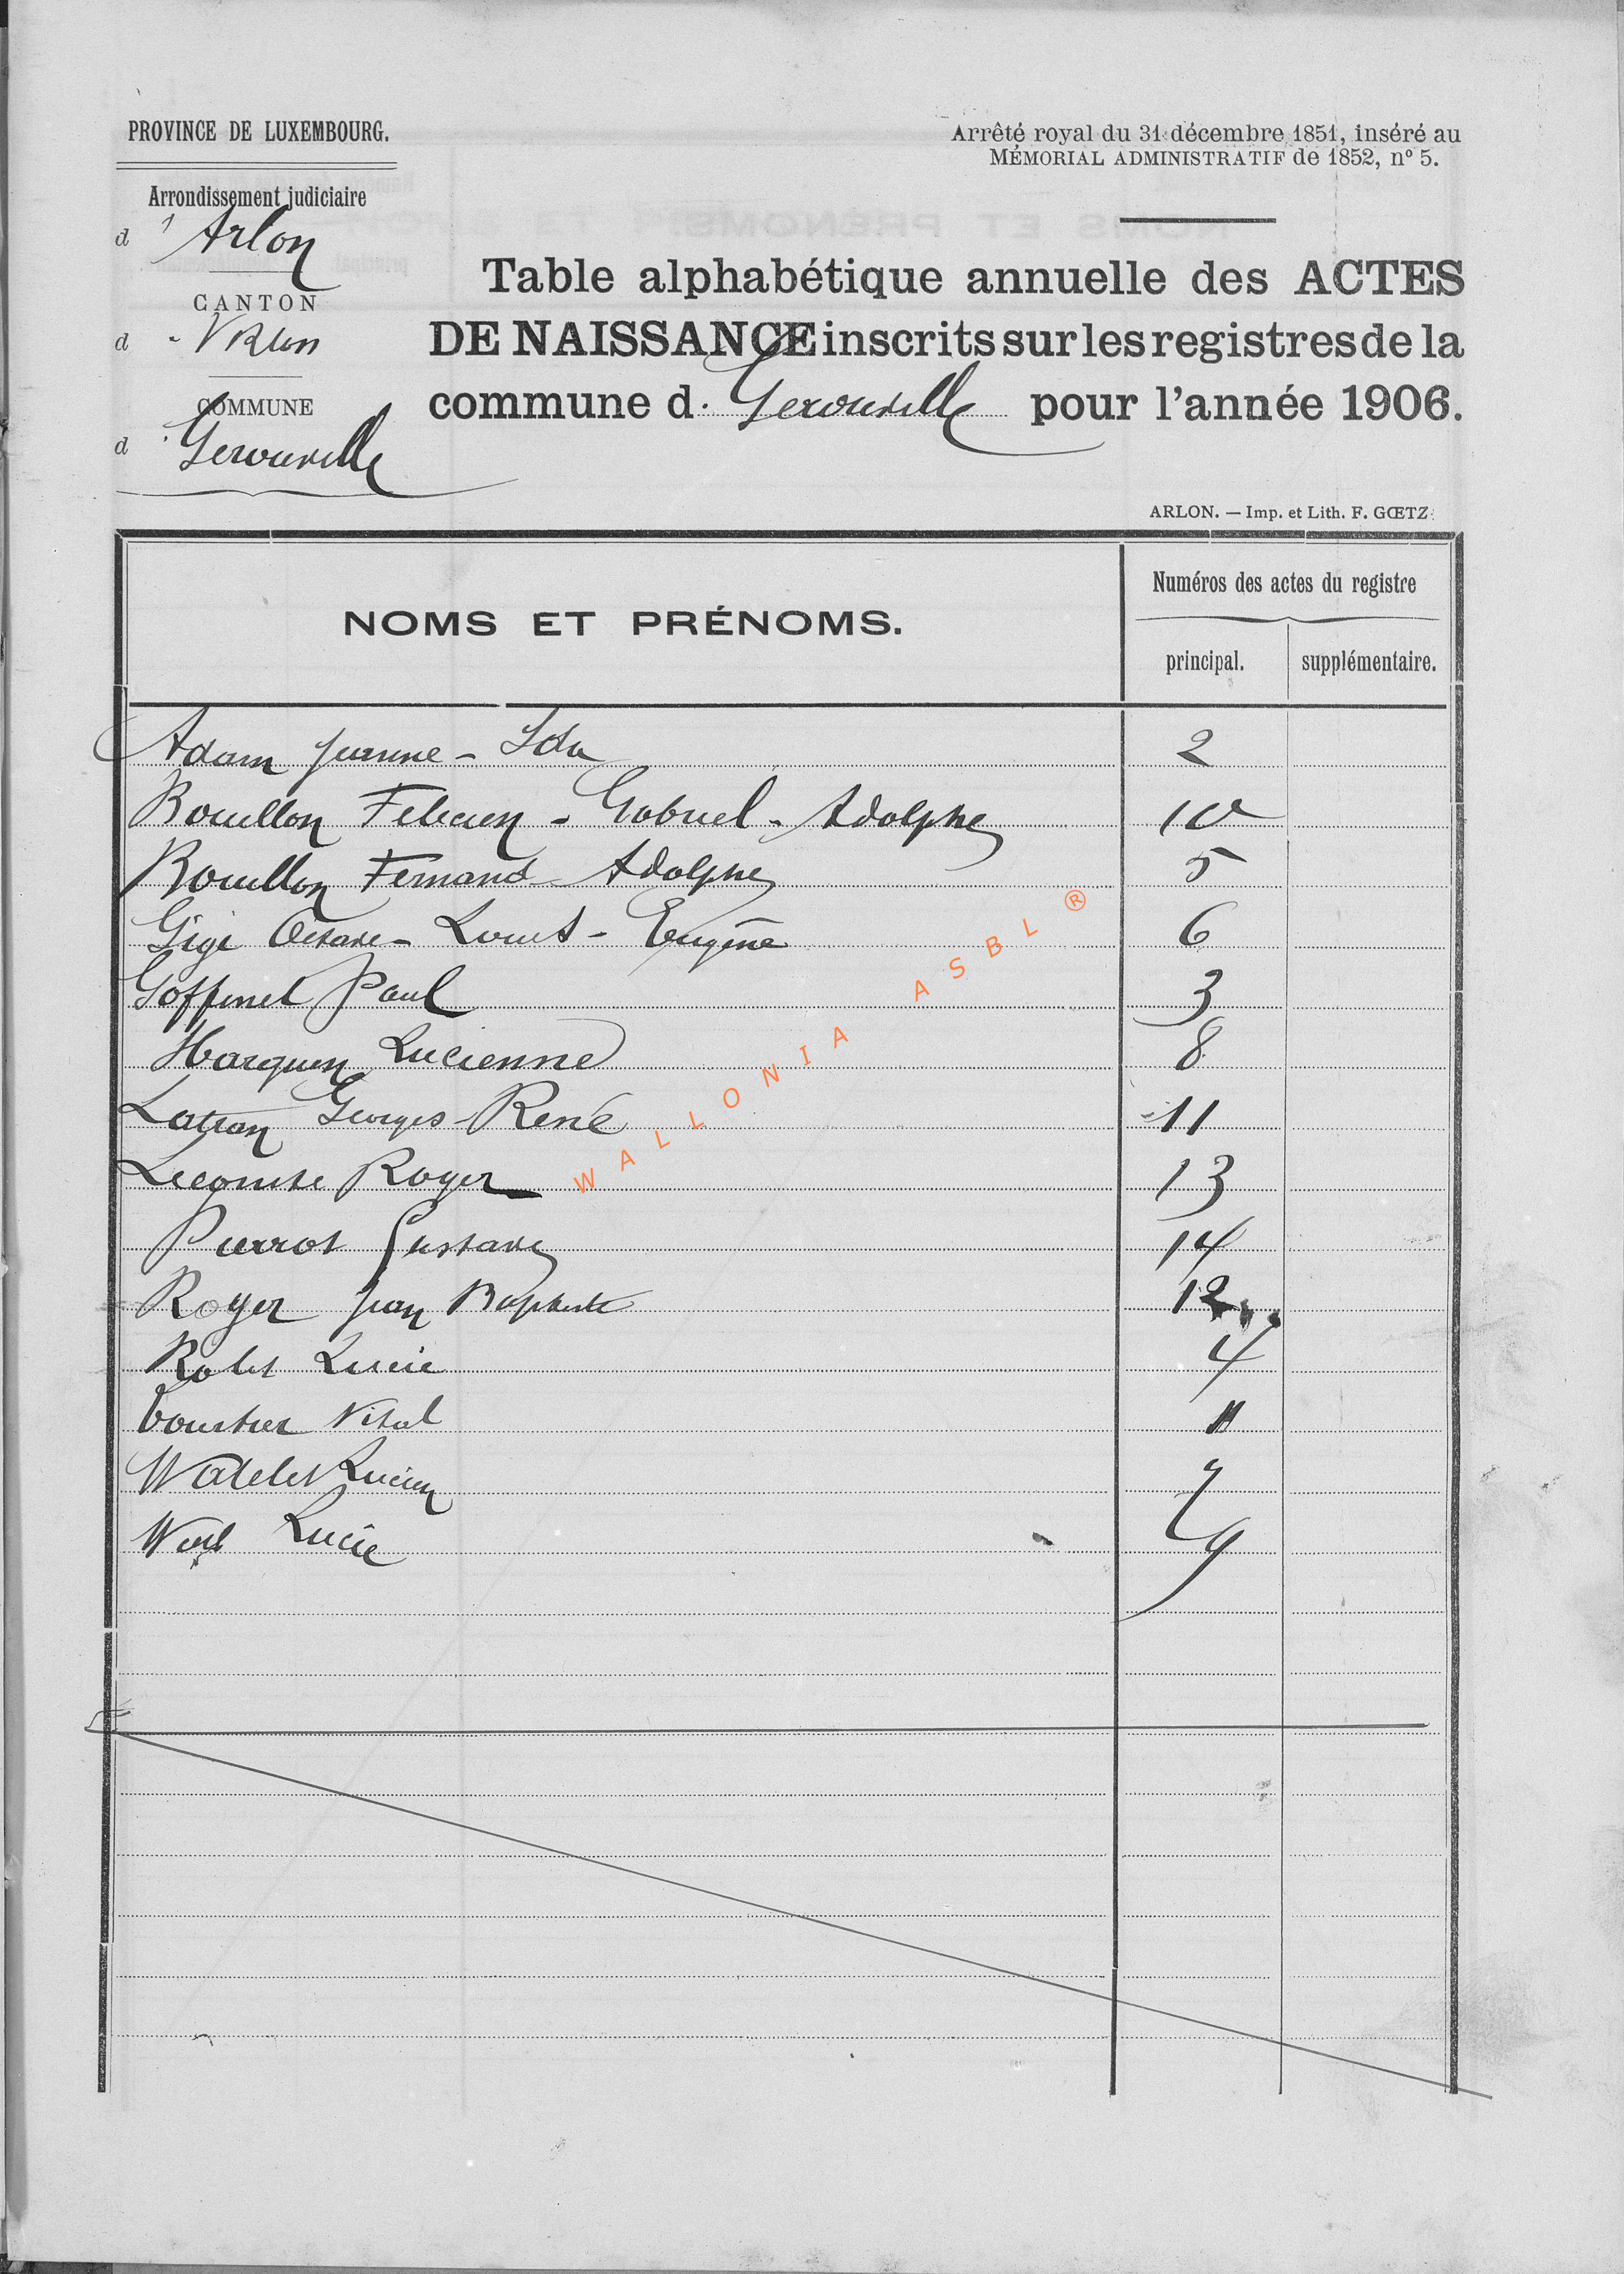 PROVINCE DE LUXEMBOURG.
Arrondissement judiciaire
d'Arlon
CANTON
d'Virton
COMMUNE
d Gerouville
Arrêté royal du 31 décembre 1851, inséré au
MÉMORIAL ADMINISTRATIF de 1852, nº 5.
Table alphabétique annuelle des ACTES
DE NAISSANCE inscrits sur les registres de la
commune d. Gerouville pour l'année 1906.
ARLON. — Imp. et Lith. F. GŒTZ.
NOMS ET PRÉNOMS.
Numéros des actes du registre
principal.
supplémentaire.
Adam Jeanne - Ida 2
Bouillon Felicien - Gabriel - Adolphe 10
Bouillon Fernand Adolphe 5
Gigi Octave - Louis - Eugène 6
Goffinet Paul 3
Lucienne 8
Latran Georges - René 11
Lecomte Roger 13
Pierrot Gustave 14
Roger Jean Baptiste 12
Lucie 4
Vital
Watelet Lucien 7
Lucie 9
WALLONIA ASBL ®